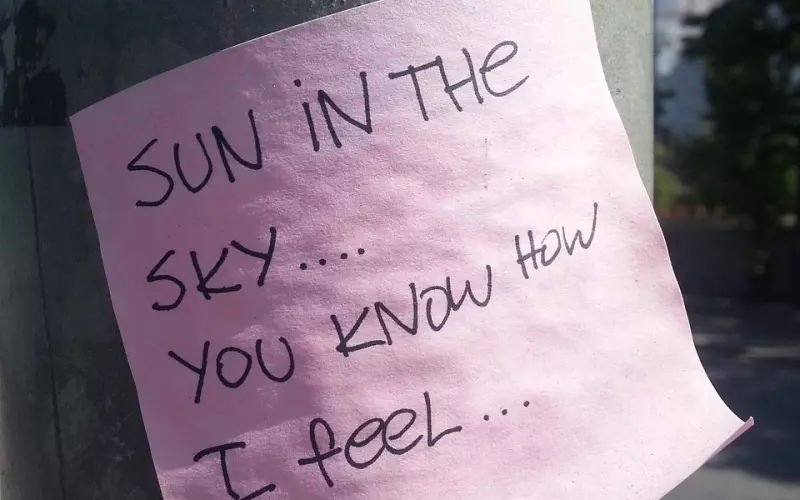 SUN iN THe
SKY....
YOU KNOW HOW
I feeL...